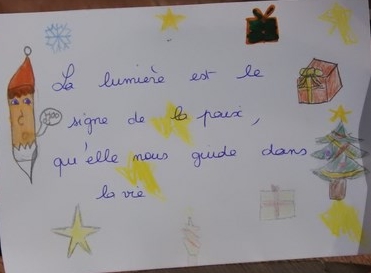 La lumière est le
signe de la paix,
qu'elle nous guide dans
la vie